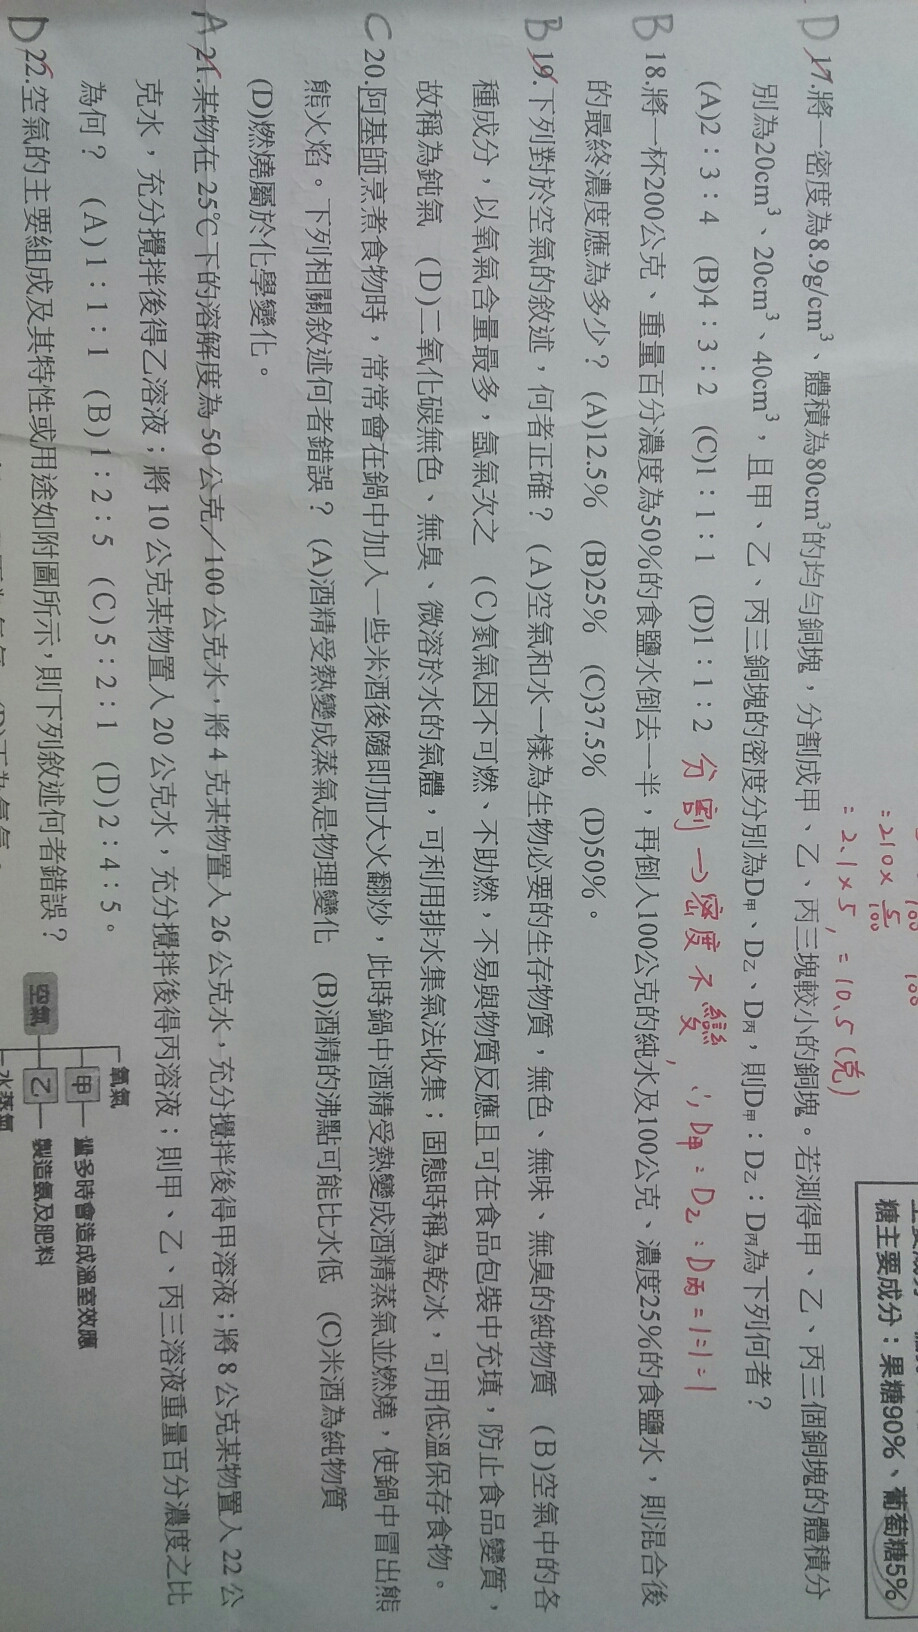 糖主要成分：果糖90%、葡萄糖5%
=210× 5/100
=2.1×5, =10.5(克)
D 17.將一密度為8.9g/cm³、體積為80cm³的均勻銅塊，分割成甲、乙、丙三塊較小的銅塊。若測得甲、乙、丙三個銅塊的體積分
別為20cm³、20cm³、40cm³，且甲、乙、丙三銅塊的密度分別為D甲、D乙、D丙，則D甲：D乙：D丙為下列何者？
(A)2：3：4 (B)4：3：2 (C)1：1：1 (D)1：1：2 分割→密度不變, ∴D甲:D乙:D丙=1:1:1
B 18.將一杯200公克、重量百分濃度為50%的食鹽水倒去一半，再倒入100公克的純水及100公克、濃度25%的食鹽水，則混合後
的最終濃度應為多少？ (A)12.5% (B)25% (C)37.5% (D)50%。
B 19.下列對於空氣的敘述，何者正確？ (A)空氣和水一樣為生物必要的生存物質，無色、無味、無臭的純物質 (B)空氣中的各
種成分，以氧氣含量最多，氬氣次之 (C)氮氣因不可燃、不助燃，不易與物質反應且可在食品包裝中充填，防止食品變質，
故稱為鈍氣 (D)二氧化碳無色、無臭、微溶於水的氣體，可利用排水集氣法收集；固態時稱為乾冰，可用低溫保存食物。
C 20.阿基師烹煮食物時，常常會在鍋中加入一些米酒後隨即加大火翻炒，此時鍋中酒精受熱變成酒精蒸氣並燃燒，使鍋中冒出熊
熊火焰。下列相關敘述何者錯誤？ (A)酒精受熱變成蒸氣是物理變化 (B)酒精的沸點可能比水低 (C)米酒為純物質
(D)燃燒屬於化學變化。
A 21.某物在 25℃下的溶解度為 50 公克／100 公克水，將 4 克某物置入 26 公克水，充分攪拌後得甲溶液；將 8 公克某物置入 22 公
克水，充分攪拌後得乙溶液；將 10 公克某物置入 20 公克水，充分攪拌後得丙溶液；則甲、乙、丙三溶液重量百分濃度之比
為何？ (A)1：1：1 (B)1：2：5 (C)5：2：1 (D)2：4：5。
D 22.空氣的主要組成及其特性或用途如附圖所示，則下列敘述何者錯誤？
空氣
氧氣
甲 量多時會造成溫室效應
乙 製造氨及肥料
水蒸氣